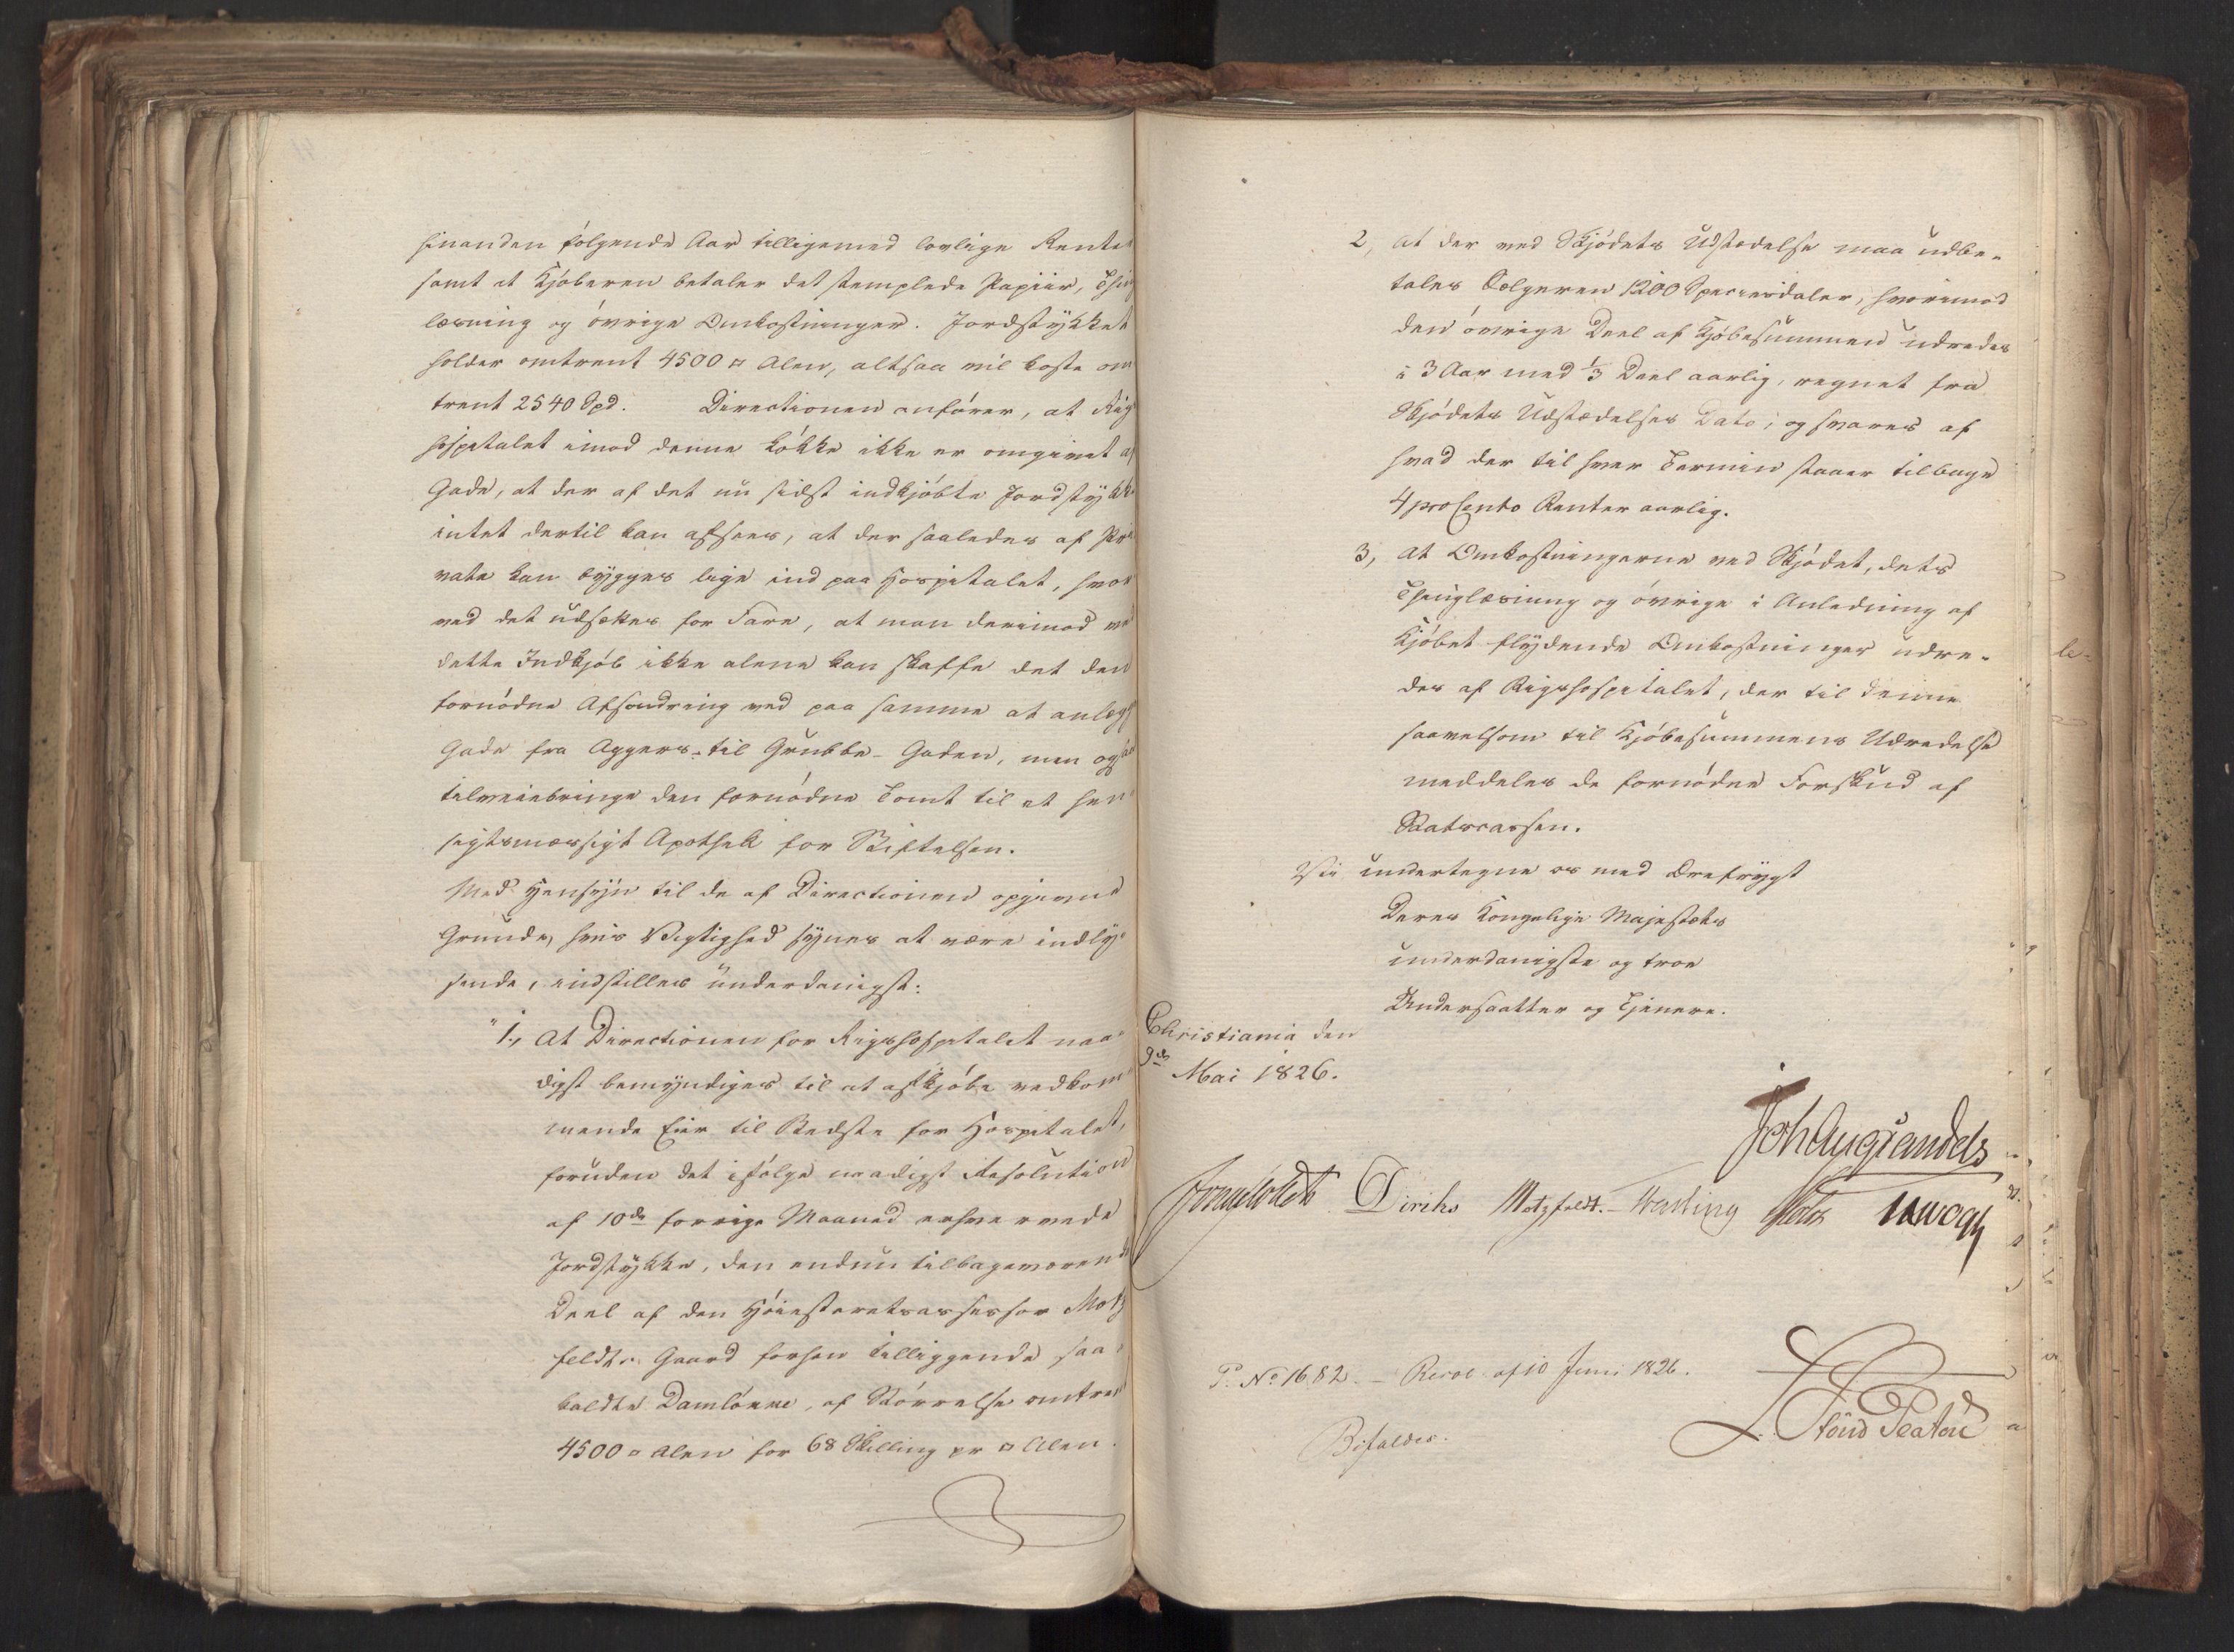 hinanden følgende Aar tilligemed lovlige Renter
samt at Kjøberen betaler det stemplede Papiir, Thing
læsning og øvrige Omkostninger. Jordstykket
holder omtrent 4500 □ Alen, altsaa vil koste om
trent 2540 Spd. Directionen anfører, at Rigs
hospitalet imod denne Løkke ikke er omgivet af
Gade, at der af det nu sidst indkjøbte Jordstykke
intet dertil kan afsees, at der saaledes af Pri
vate kan bygges lige ind paa Hospitalet, hvor
ved det udsættes for Fare, at man derimod ved
dette Indkjøb ikke alene kan skaffe det den
fornødne Afsondring ved paa samme at anlægge
Gade fra Aggers- til Grubbe-Gaden, men ogsaa
tilveiebringe den fornødne Tomt til et hen-
sigtsmæssigt Apothek for Stiftelsen.
Med Hensyn til de af Directionen opgivne
Grunde, hvis Vigtighed synes at være indly-
sende, indstilles underdanigst:
"1, At Directionen for Rigshospitalet naa-
digst bemyndiges til at afkjøbe vedkom-
mende Eier til Bedste for Hospitalet,
foruden det ifølge naadigst Resolution
af 10de forrige Maaned erhvervede
Jordstykke, den endnu tilbageværende
Deel af den Høiesteretsassessor Motz
feldts Gaard forhen tilliggende saa-
kaldte Damløkke, af Størrelse omtrent
4500 □ Alen for 68 Skilling pr □ Alen.
2, at der ved Skjødets Udstædelse maa udbe-
tales Sælgeren 1200 Speciesdaler, hvorimod
den øvrige Deel af Kjøbesummen udredes
i 3 Aar med 1/3 Deel aarlig, regnet fra
Skjødets Udstædelses Dato; og svares af
hvad der til hver Termin staaer tilbage
4 pro Cento Renter aarlig.
3, at Omkostningerne ved Skjødet, dets
Thinglæsning og øvrige i Anledning af
Kjøbet flydende Omkostninger udre-
des af Rigshospitalet, der til denne
saavelsom til Kjøbesummens Udredelse
meddeles de fornødne Forskud af
Statscassen.
Vii undertegne os med Ærefrygt
Deres Kongelige Majestæts
underdanigste og troe
Undersaatter og Tjenere.
Christiania den
9de Mai 1826.
Joh Aug Sandels
Diriks Motzfeldt. Treschow
P. No 1682. – Resol. af 10 Juni 1826.
Bifaldes.